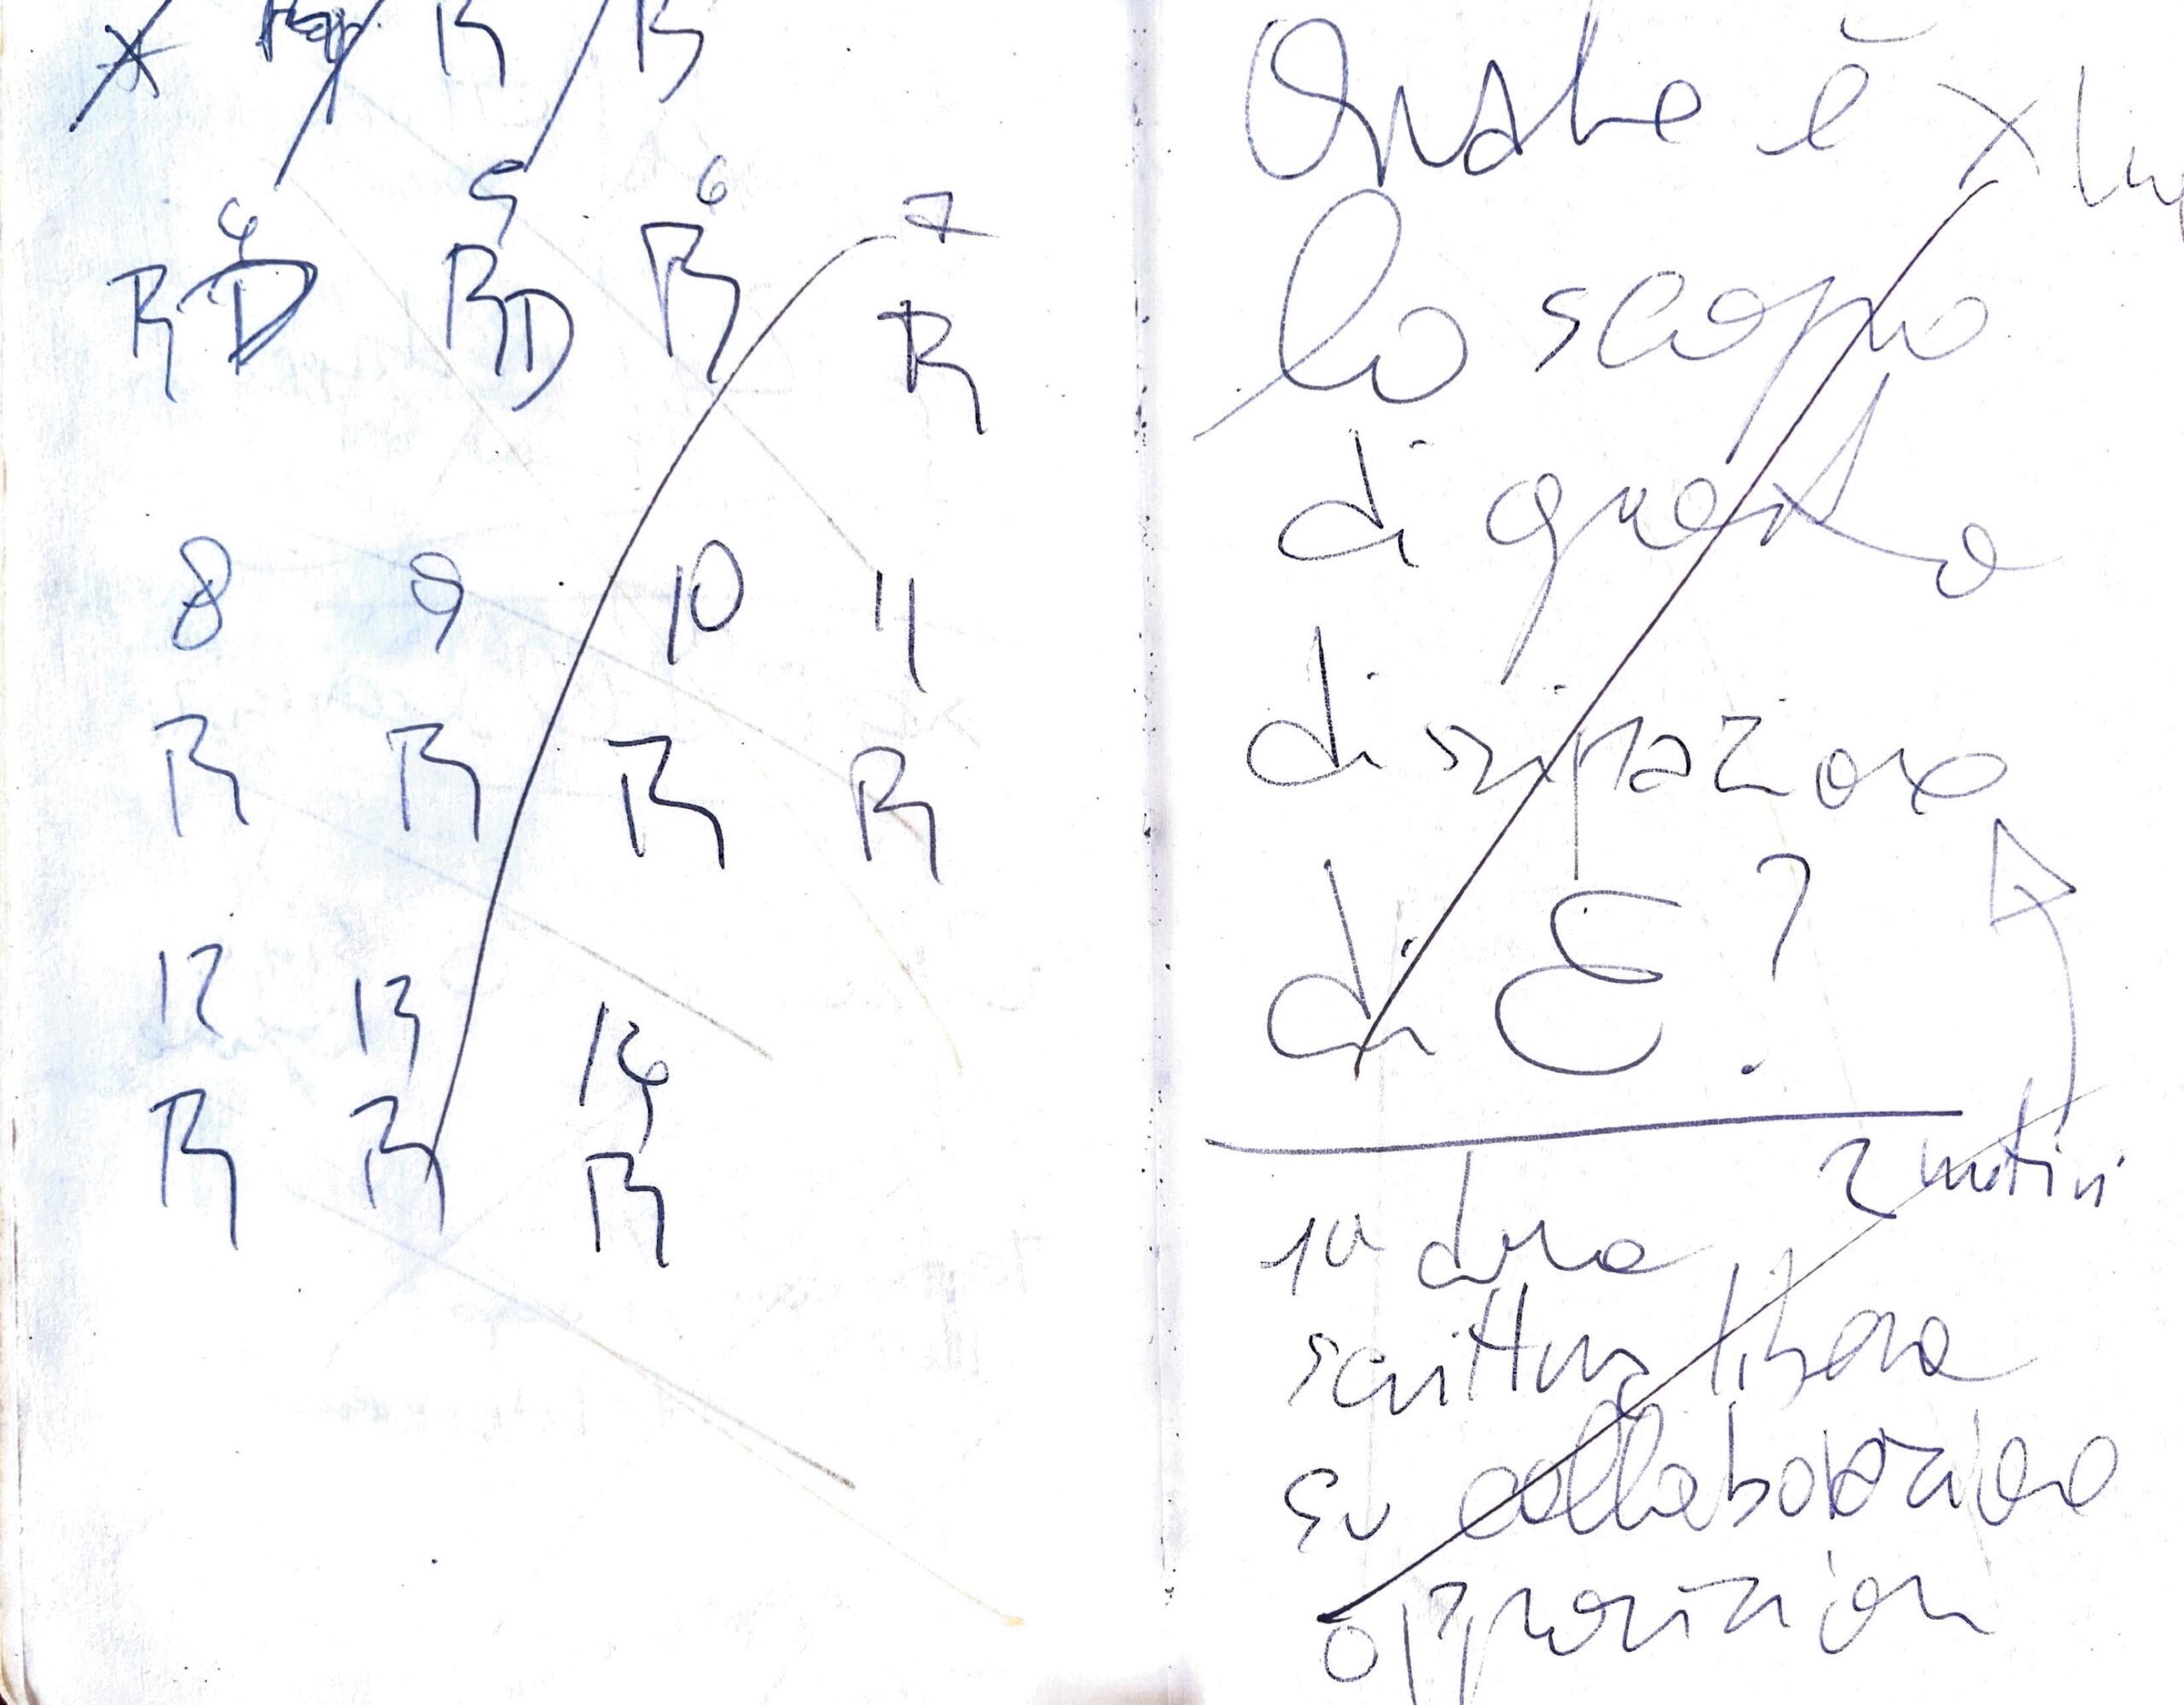 R R
4 5 6 7
RD RD R R
8 9 10 11
R R R R
12 13 14
R R R
Quale è x lui
lo scopo
di questa
dissipazione
di E?
2 motivi
scrittura libera
su collaborazione
opposizion